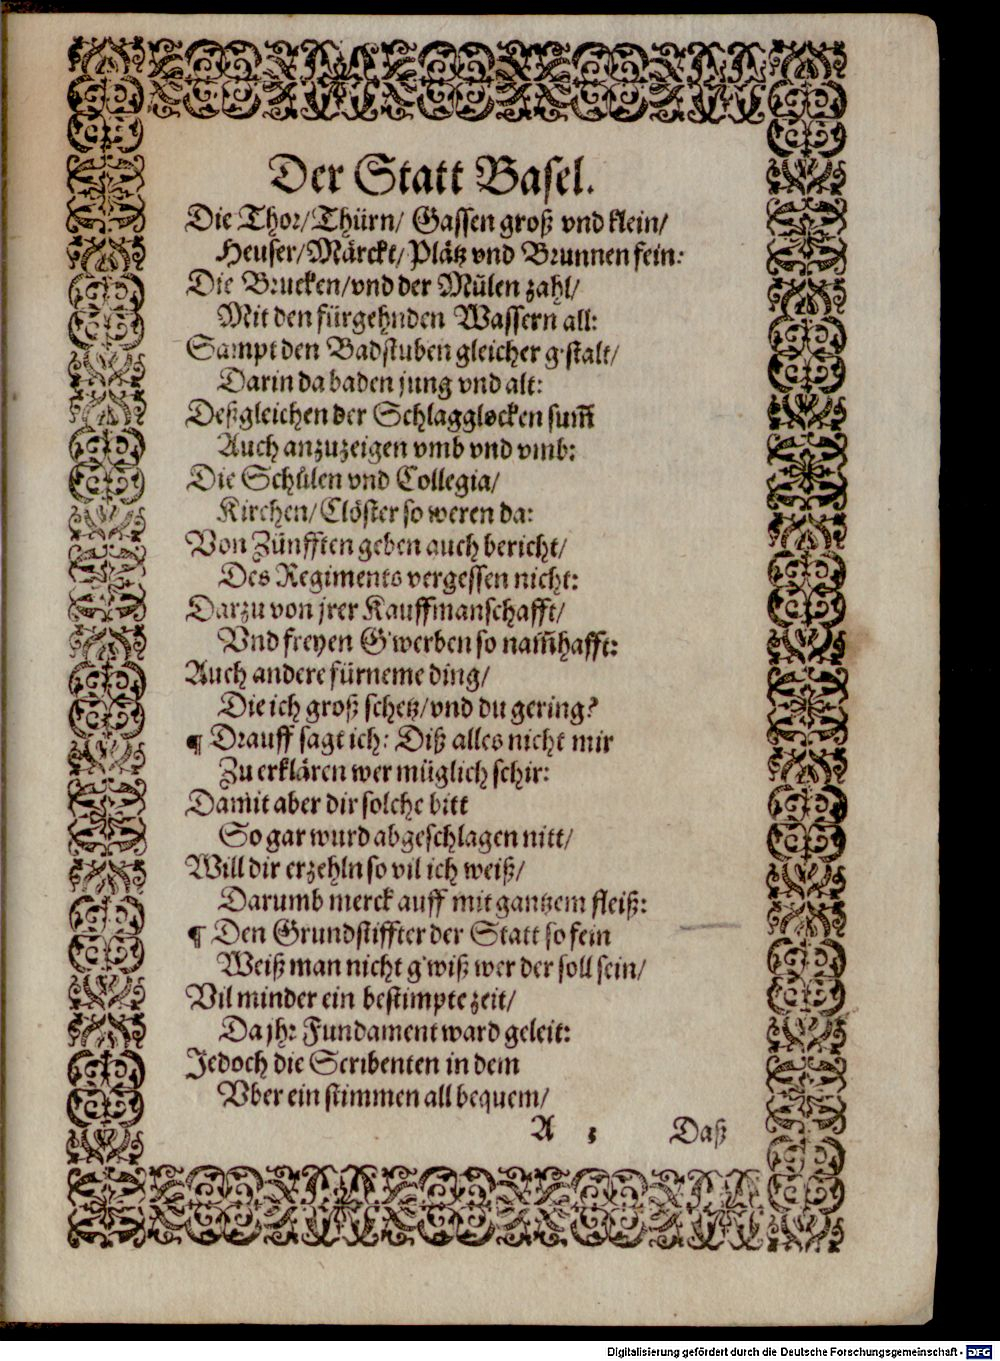 Der Statt Basel.
Die Thor/Thürn/ Gassen groß vnd klein/
Heuser/Märckt/Plätz vnd Brunnen fein:
Die Brucken/vnd der Mülen zahl/
Mit den fürgehnden Wassern all:
Sampt den Badstuben gleicher g'stalt/
Darin da baden jung vnd alt:
Deßgleichen der Schlagglocken sum̃
Auch anzuzeigen vmb vnd vmb:
Die Schůlen vnd Collegia/
Kirchen/Clöster so weren da:
Von Zünfften geben auch bericht/
Des Regiments vergessen nicht:
Darzu von jrer Kauffmanschafft/
Vnd freyen G'werben so nam̃hafft:
Auch andere fürneme ding/
Die ich groß schetz/vnd du gering?
¶ Drauff sagt ich: Diß alles nicht mir
Zu erklären wer müglich schir:
Damit aber dir solche bitt
So gar wurd abgeschlagen nitt/
Will dir erzehln so vil ich weiß/
Darumb merck auff mit gantzem fleiß:
¶ Den Grundstiffter der Statt so fein
Weiß man nicht g'wiß wer der soll sein/
Vil minder ein bestimpte zeit/
Da jhr Fundament ward geleit:
Jedoch die Scribenten in dem
Vber ein stimmen all bequem/
A 3 Daß
Digitalisierung gefördert durch die Deutsche Forschungsgemeinschaft - DFG